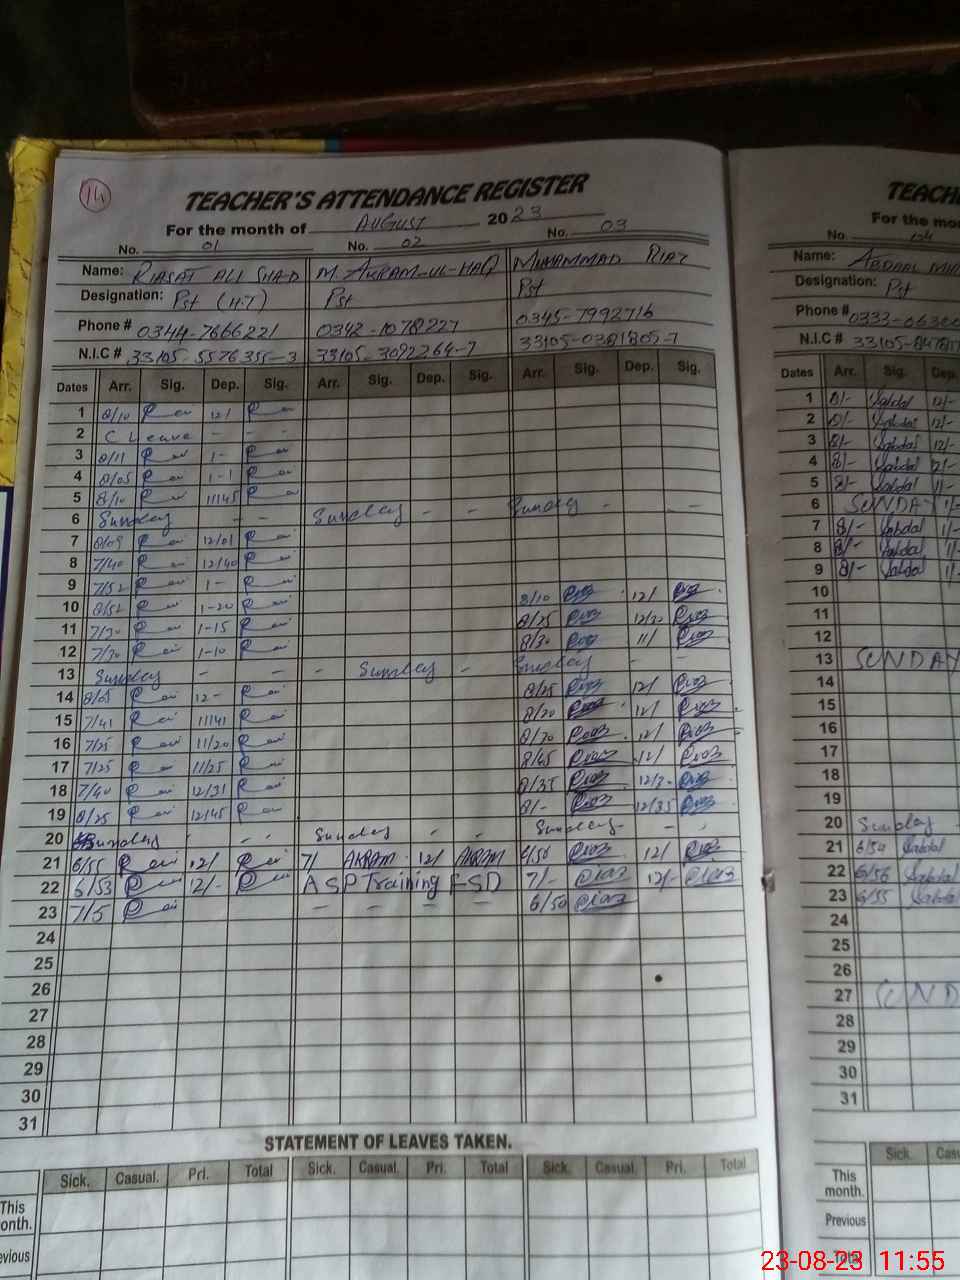 14
TEACHER'S ATTENDANCE REGISTER
For the month of AUGUST 2023
No. 01 No. 02 No. 03
Name: RIASAT ALI M. AKRAM-UL-HAQ MUHAMMAD RIAZ
Designation: Pst (H.T) Pst Pst
Phone # 0344-7666221 0342-1078227 0345-7992716
N.I.C # 33105-5576355-3 33105-3092264-7 33105-0381805-7
Dates Arr. Sig. Dep. Sig. Arr. Sig. Dep. Sig. Arr. Sig. Dep. Sig.
1 8/10 12/
2 C Leave - - -
3 8/11 1-
4 8/05 1-1
5 8/10 11/45
6 Sunday - - Sunday - - Sunday - - -
7 8/09 12/01
8 7/40 12/40
9 7/52 1-
10 8/52 1-20 8/10 12/
11 7/30 1-15 8/25 12/30
12 7/30 1-10 8/30 11/
13 Sunday - - - Sunday - Sunday - -
14 8/05 12- 8/25 12/
15 7/41 11/41 8/20 12/
16 7/25 11/20 8/30 12/
17 7/25 11/25 8/45 12/
18 7/40 12/31 8/35
19 8/25 12/45 8/- 12/35
20 Sunday - - Sunday - - Sunday - -
21 6/55 12/ 7/ AKRAM 12/ AKRAM 6/56 12/
22 6/53 12/- ASP Training FSD 7/- 12/-
23 7/5 - - - - 6/50
24
25
26
27
28
29
30
31
STATEMENT OF LEAVES TAKEN.
Sick. Casual. Pri. Total Sick. Casual. Pri. Total Sick. Casual. Pri. Total
This
onth.
evious
TEACH
For the mo
No. 04
Name: ABDAAL
Designation: Pst
Phone # 0333-
N.I.C # 33105-
Dates Arr. Sig. Dep.
1 8/- Sabdal 12/-
2 8/- Sabdal 12/-
3 8/- Sabdal 12/-
4 8/- Sabdal 12/-
5 8/- Sabdal 11/-
6 SUNDAY
7 8/- Sabdal 11/-
8 8/- Sabdal 11/-
9 8/- Sabdal 11/-
10
11
12
13 SUNDAY
14
15
16
17
18
19
20 Sunday -
21 6/50 Sabdal
22 6/56 Sabdal
23 6/55 Sabdal
24
25
26
27 SUND
28
29
30
31
Sick. Cas
This
month.
Previous
Total
23-08-23 11:55